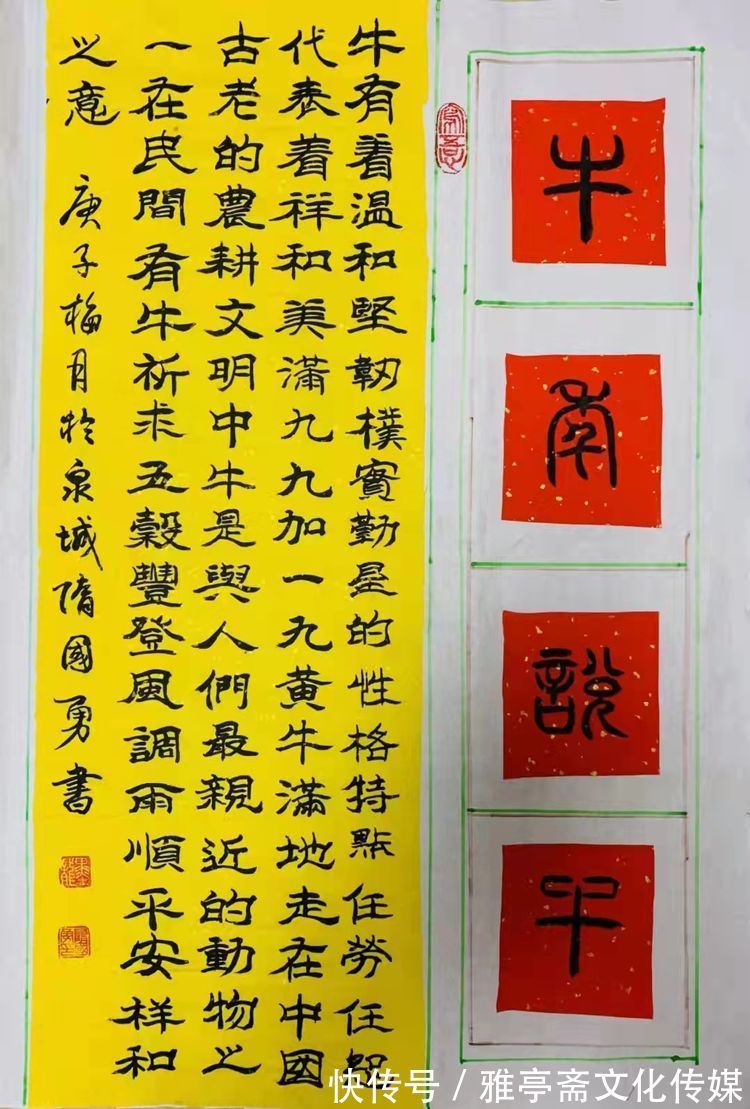 牛年說牛
牛有着温和堅韌樸實勤垦的性格特點任勞任怨
代表着祥和美滿九九加一九黃牛滿地走在中國
古老的農耕文明中牛是與人們最親近的動物之
一在民間有牛祈求五穀豐登風調雨順平安祥和
之意 庚子梅月於泉城隋國勇書
快传号 / 雅亭斋文化传媒